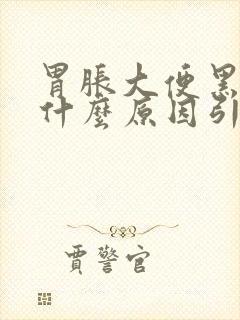 胃脹大便黑
什麼原因引
賈警官